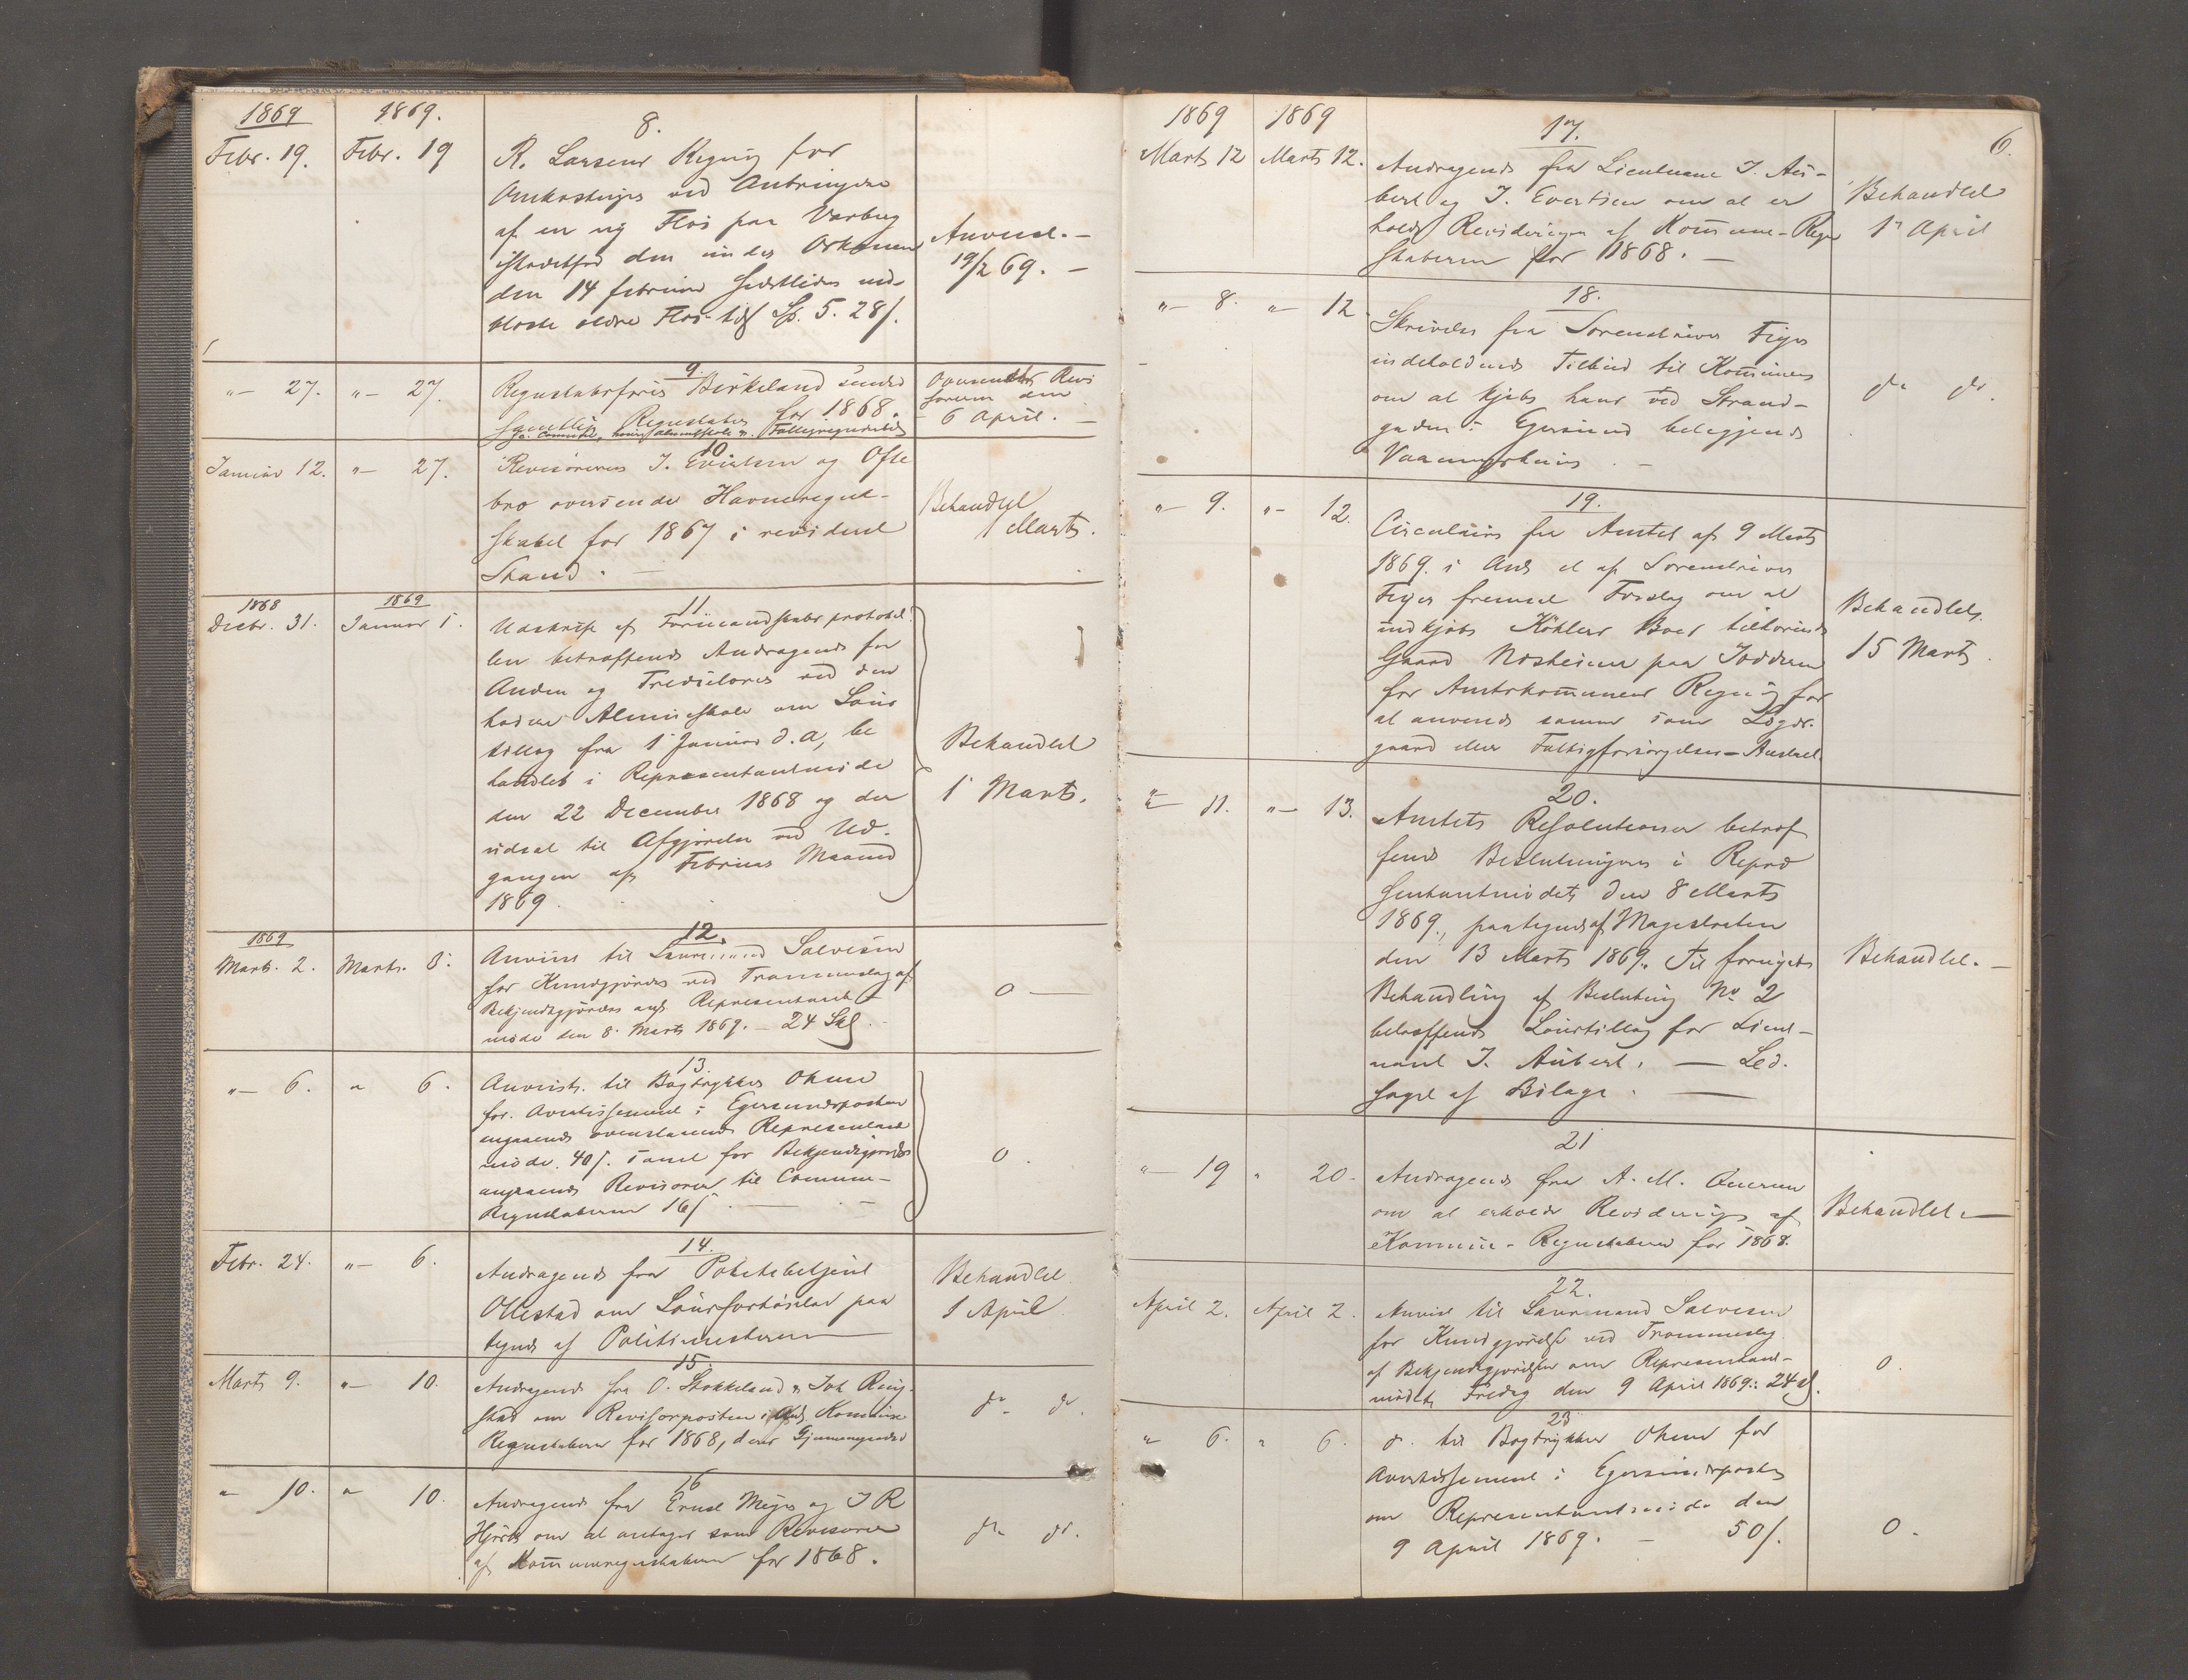 1869
1869.
8.
Febr. 19.
Febr. 19
R. Larsens Regning for
Omkostninger ved Anbringelse
af en ny Fløi paa Varberg
istedetfor den under Orkanen
den 14 februar
ældre Fløi Sp. 5. 28/.
Anvend. -
19/2 69. -
"- 27.
"- 27.
9.
Regnskabsfører Birkeland sender
samtlige Regnskaber for 1868.
Revi
sorerne den
6 April. -
Januar 12.
"- 27.
10
Revisorerne J. Evertsen og Ofte
bro oversender Havneregnt-
skabet for 1867 i revideret
Stand. -
Behandlet
1 Marts.
1868
Decbr. 31.
1869
Januar 1.
11
Udskrift af Formandskabsprotokol
len betræffende Andragende fra
Anden og Tredielærer ved den
høiere Almueskole om Løns
tillæg fra 1 Januar d. A, be
handlet i Repræsentantmøde
den 22 December 1868 og der
udsat til Afgjørelse ved Ud-
gangen af Februar Maaned
1869.
Behandlet
1 Marts.
1869
Marts. 2.
Marts. 8.
12.
Anviist til Salvesen
for Kundgjørelse ved Trommeslag af
Bekjendtgjørelse ang. Repræsentant
møde den 8. Marts 1869. - 24 Skl.
0
"- 6.
" 6.
13.
Anviist. til Bogtrykker Ohme
for. Avertissement i Egersundsposten
angaaende ovenstaaende Repræsentant
møde. 40/. samt for Bekjendtgjørelse
angaaende Revisorer til Commune-
Regnskaberne 16/
0.
Febr. 24.
"- 6.
14.
Andragende fra Politibetjent
Ollestad om Lønsforhøielse paa
tegnet af Politimesteren
Behandlet
1 April.
Marts 9.
"- 10.
15.
Andragende fra O. Stokkeland & Joh Ring-
stad om Revisorposten i Anl. Kommune
Regnskaberne for 1868, deres Gjennemgaaelse
do do.
" 10.
" 10.
16
Andragende fra Ernst Meyer og J R
Hjorth om at antages som Revisorer
af Kommuneregnskaberne for 1868.
do do.
6.
1869
1869
17.
Marts 12
Marts 12.
Andragende fra Lieutnant J. Au-
bert og J. Evertsen om at er
holde Revideringen af Kommune-Regn
skaberne for 1868. -
Behandlet
1 April
"- 8.
"- 12
18.
Skrivelse fra Sorenskriver Feyer
indeholdende Tilbud til Kommunen
om at kjøbe hans ved Strand-
gaden i Egersund beliggende
Vaaningshuus. -
do do.
"- 9.
"- 12.
19.
Circulaire fra Amtet af 9 Marts
1869. i Anl. et af Sorenskriver
Feyer fremsat Forslag om at
indkjøbe Køhlers Boes tilhørende
Gaard Nærheim paa Jæderen
for Amtskommunens Regning for
at anvende samme som Lægds-
gaard eller Fattigforsørgelses-Anstalt.
Behandlet.
15 Marts.
"- 11.
"- 13.
20.
Amtets Resolutioner betræf
fende Beslutningerne i Repræ
sentantmødet den 8 Marts
1869., paategnet af Magistraten
den 13 Marts 1869. Til fornyet
Behandling af Beslutning No 2
betræffende Lønstillæg for Lieut-
nant J. Aubert. - Led-
saget af Bilage. -
Behandlet. -
"- 19
" 20.
21
Andragende fra A. M.
om at erholde Revideringen af
Kommune-Regnskaberne for 1868.
Behandlet. -
April 2.
April 2.
22.
Anviist til Salvesen
for Kundgjørelse ved Trommeslag
af Bekjendtgjørelsen om Repræsentant-
mødet Fredag den 9 April 1869: 24 s.
0.
" 6.
" 6.
23
do. til Bogtrykker Ohme for
Avertissement i Egersundsposten
om Repræsentantmøde den
9 April 1869. - 50/.
0.